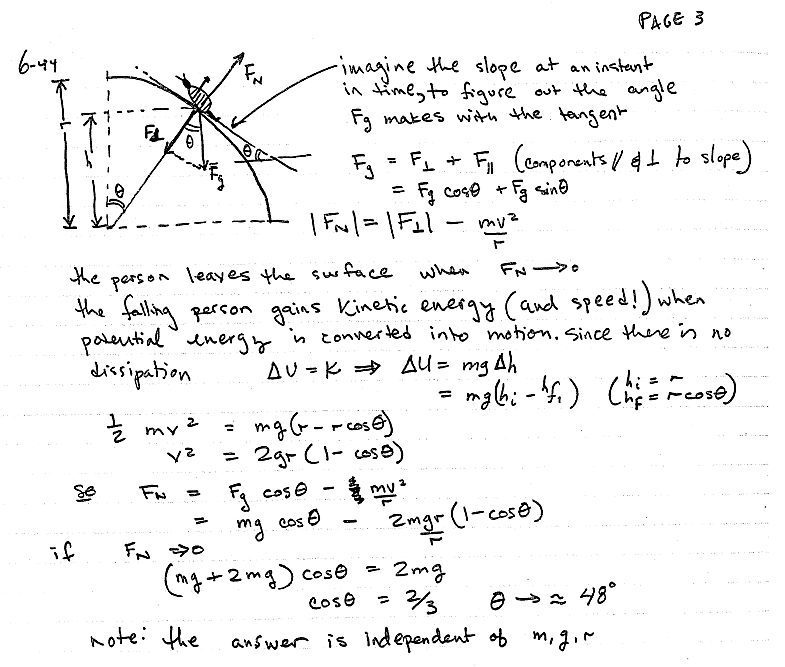 PAGE 3
6-44
imagine the slope at an instant
in time, to figure out the angle
Fg makes with the tangent
FN
F⊥
θ
θ
Fg
r
h
θ
Fg = F⊥ + F∥ (components ∥ & ⊥ to slope)
= Fg cosθ + Fg sinθ
|FN| = |F⊥| - mv²/r
the person leaves the surface when FN → 0
the falling person gains kinetic energy (and speed!) when
potential energy is converted into motion. Since there is no
dissipation ΔU = K ⇒ ΔU = mgΔh
= mg(hi - hf) (hi = r
hf = r cosθ)
½ mv² = mg(r - r cosθ)
v² = 2gr (1 - cosθ)
so FN = Fg cosθ - mv²/r
= mg cosθ - 2mgr/r (1 - cosθ)
if FN ⇒ 0
(mg + 2mg) cosθ = 2mg
cosθ = 2/3 θ → ≈ 48°
note: the answer is independent of m, g, r